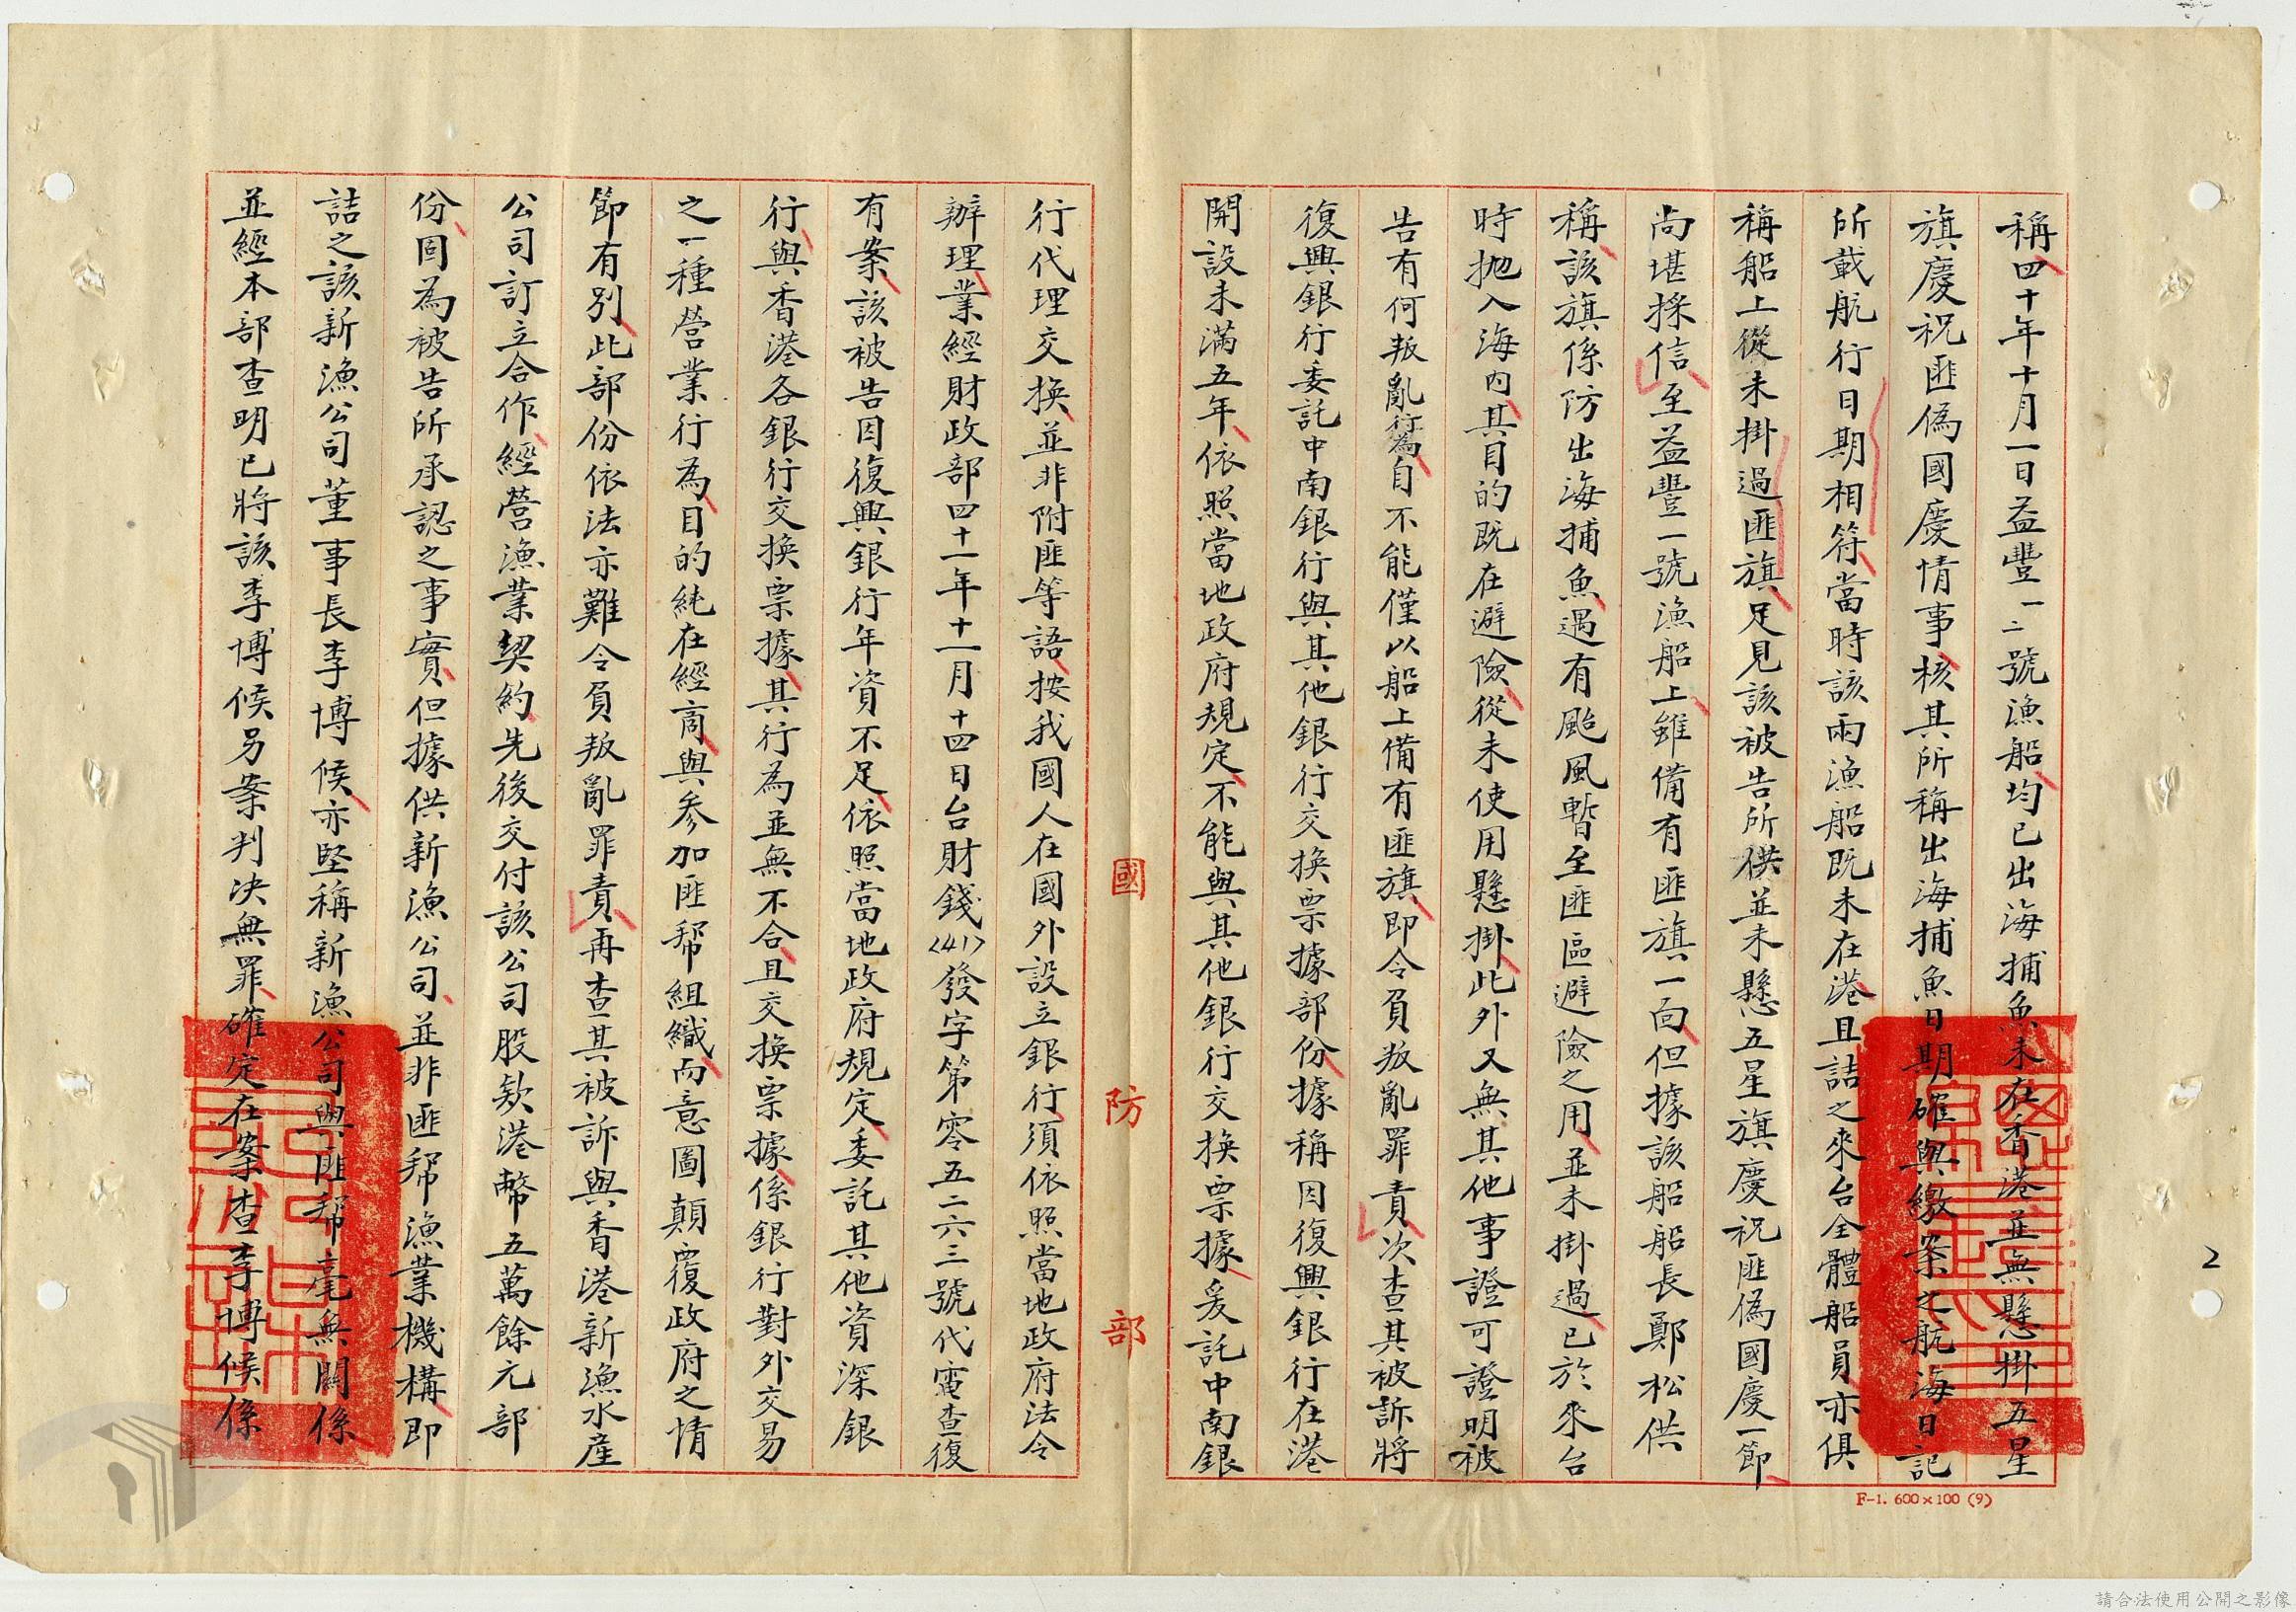 稱四十年十月一日益豐一二號漁船均已出海捕魚未在香港並無懸掛五星
旗慶祝匪偽國慶情事核其所稱出海捕魚日期確與繳案之航海日記
所載航行日期相符當時該兩漁船既未在港且詰之來台全體船員亦俱
稱船上從未掛過匪旗足見該被告所供並未懸五星旗慶祝匪偽國慶一節
尚堪採信至益豐一號漁船上雖備有匪旗一面但據該船船長鄭松供
稱該旗係防出海捕魚遇有颱風暫至匪區避險之用並未掛過已於來台
時拋入海內其目的既在避險從未使用懸掛此外又無其他事證可證明被
告有何叛亂行為自不能僅以船上備有匪旗即令負叛亂罪責次查其被訴將
復興銀行委託中南銀行與其他銀行交換票據部份據稱因復興銀行在港
開設未滿五年依照當地政府規定不能與其他銀行交換票據爰託中南銀
國防部
行代理交換並非附匪等語按我國人在國外設立銀行須依照當地政府法令
辦理業經財政部四十一年十一月十四日台財錢(41)發字第零五二六三號代電查復
有案該被告因復興銀行年資不足依照當地政府規定委託其他資深銀
行與香港各銀行交換票據其行為並無不合且交換票據係銀行對外交易
之一種營業行為目的純在經商與參加匪幫組織而意圖顛覆政府之情
節有別此部份依法亦難令負叛亂罪責再查其被訴與香港新漁水產
公司訂立合作經營漁業契約先後交付該公司股欵港幣五萬餘元部
份固為被告所承認之事實但據供新漁公司並非匪幫漁業機構即
詰之該新漁公司董事長李博候亦堅稱新漁公司與匪幫毫無關係
並經本部查明已將該李博候另案判決無罪確定在案查李博候係
F-1. 600×100 (9)
2
請合法使用公開之影像